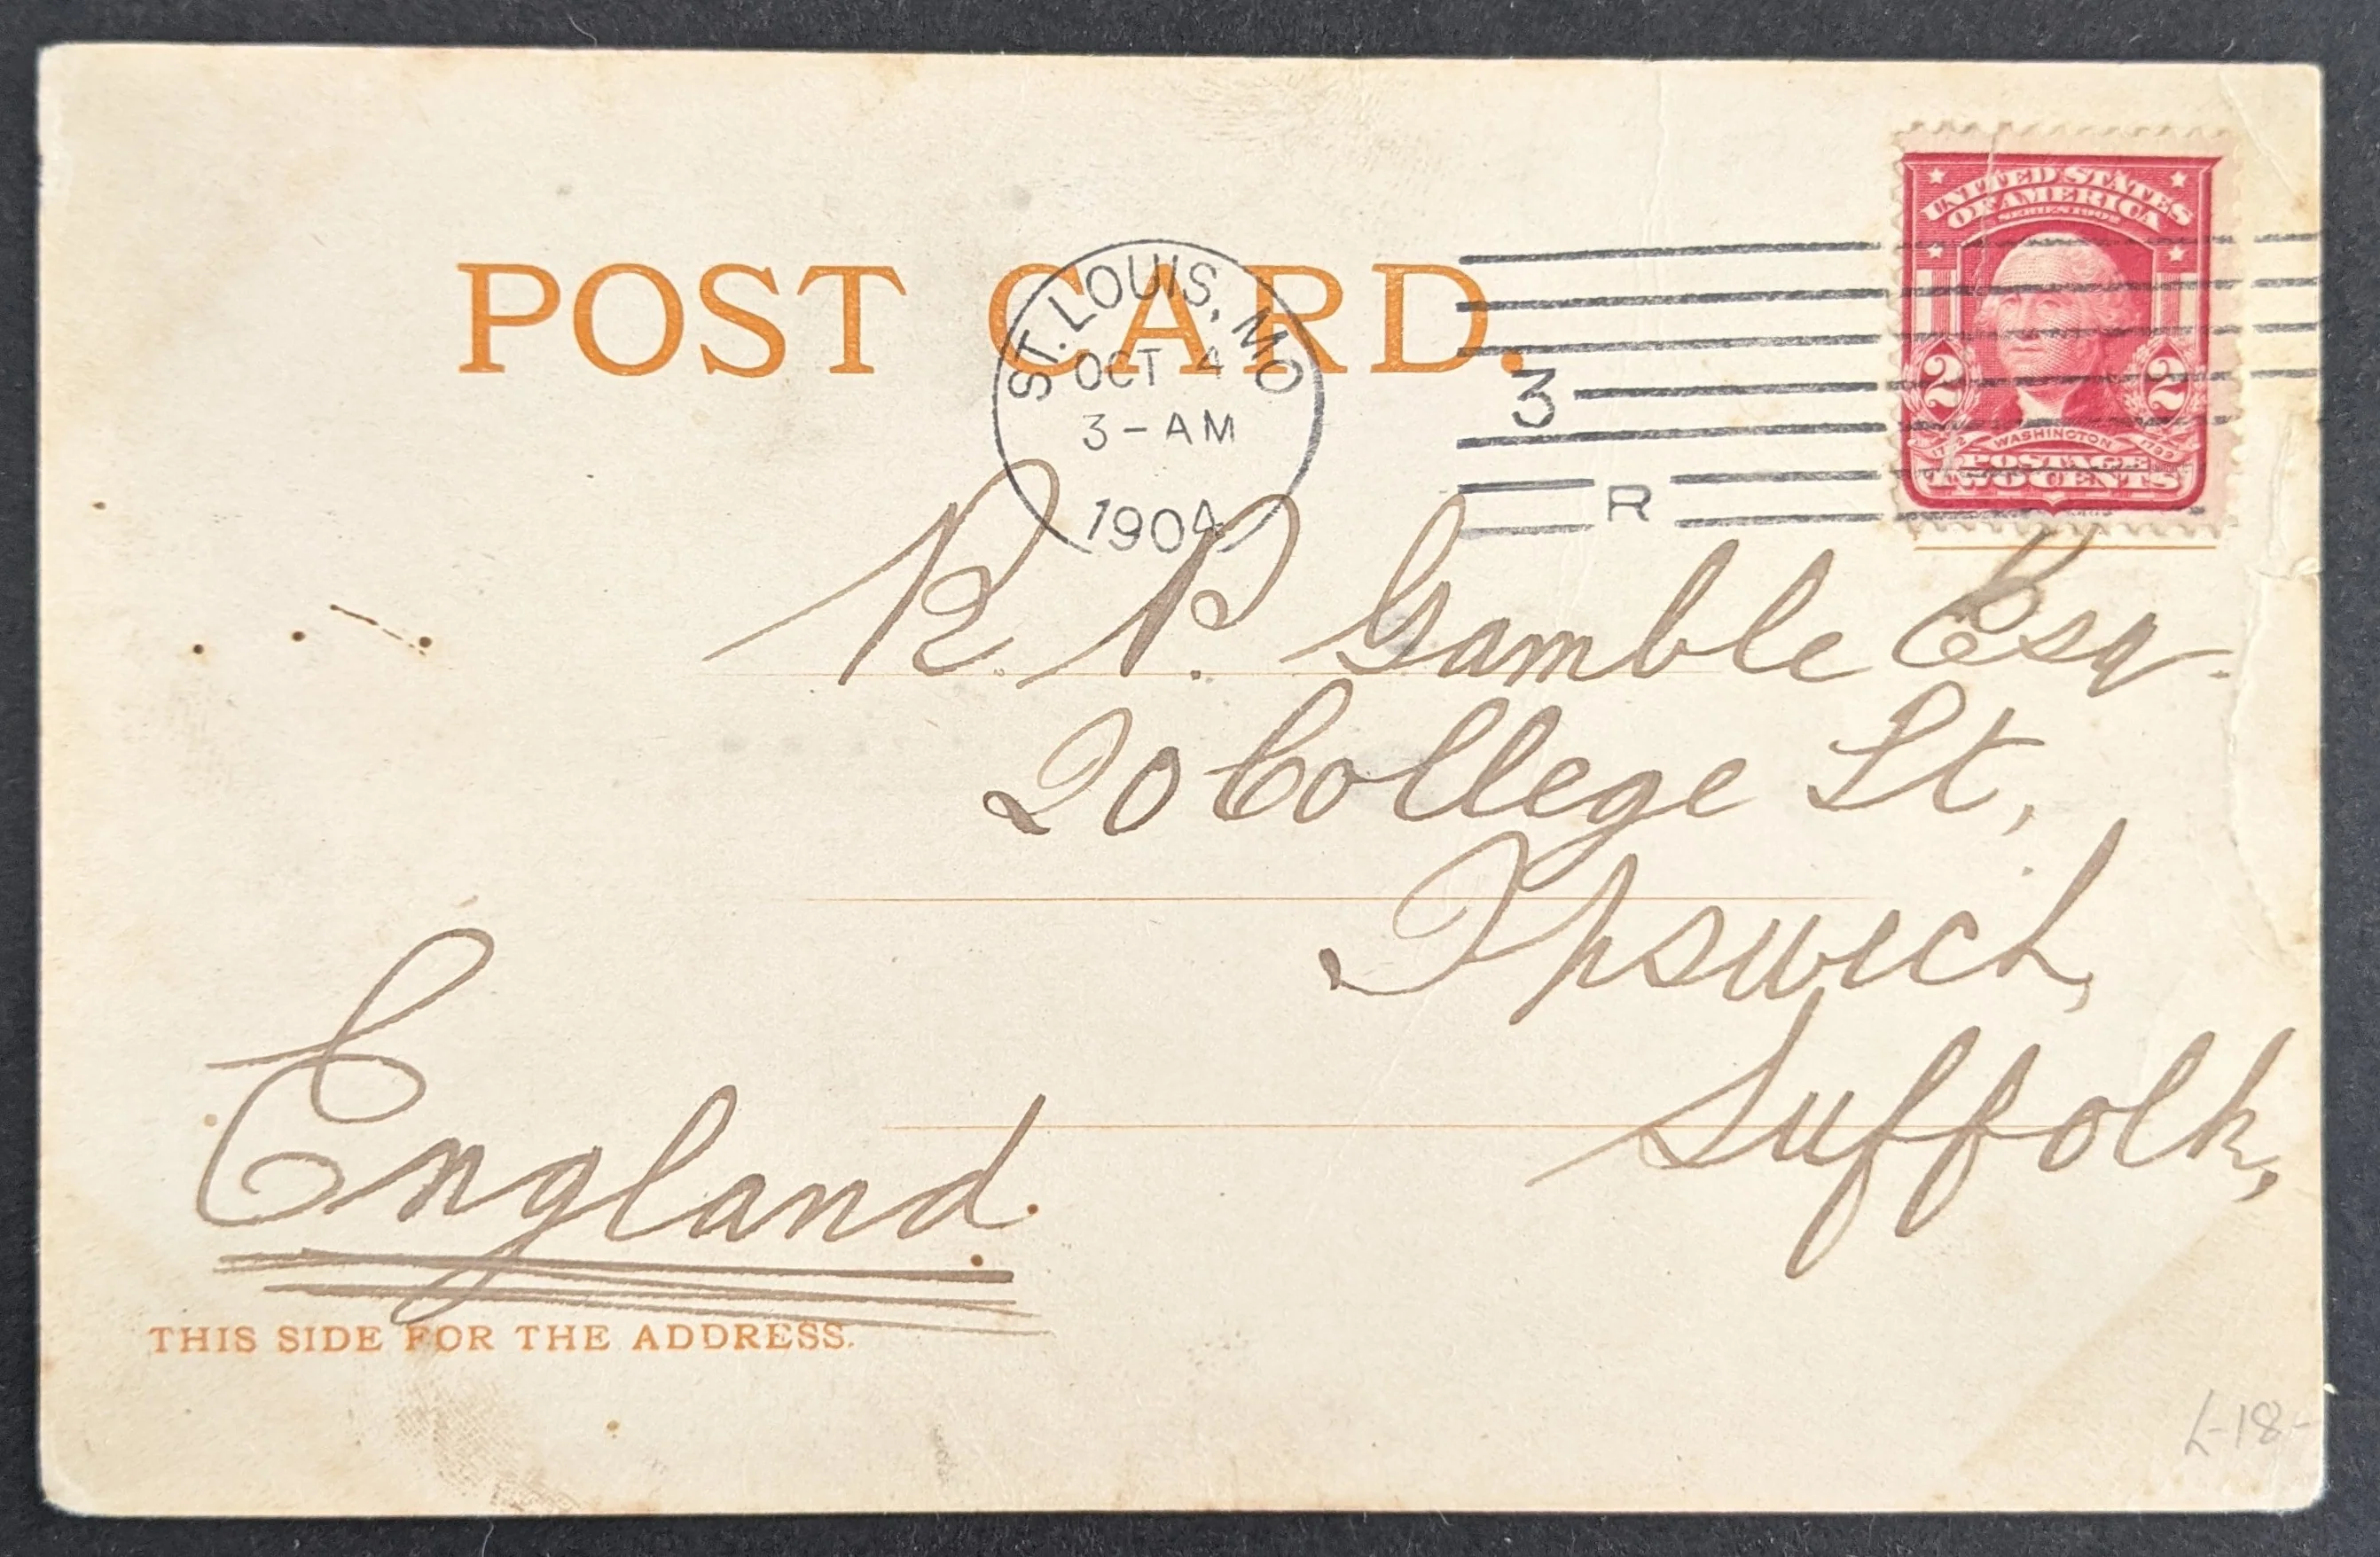 POST CARD.
ST. LOUIS, MO
OCT 4
3-AM
1904
3
R
UNITED STATES
OF AMERICA
SERIES 1902
2 2
WASHINGTON
1732 1799
POSTAGE
TWO CENTS
R. P. Gamble Esq.
20 College St,
Ipswich,
Suffolk,
England.
THIS SIDE FOR THE ADDRESS.
L-18-